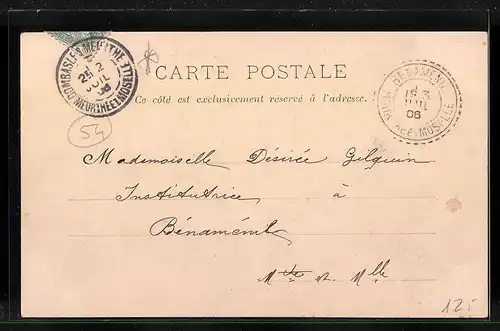 DOMBASLE S MEURTHE
25 2
JUIL
06
MEURTHE ET MOSELLE
CARTE POSTALE
BÉNAMÉNIL
15 3
JUIL
06
MEURTHE ET MOSELLE
Ce côté est exclusivement réservé à l'adresse.
54
Mademoiselle Désirée Gilquin
Institutrice à
Bénaménil
Mthe et Mlle
125